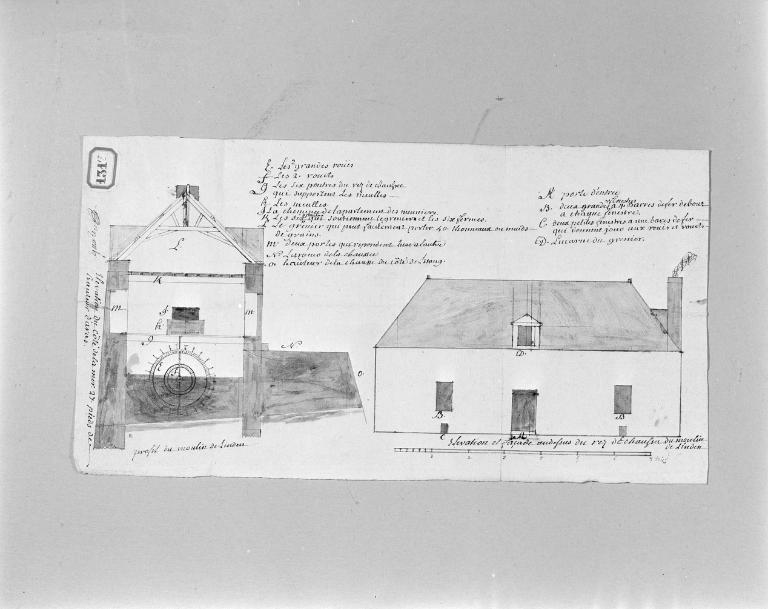 131
E. Les grandes roues
f Les 2. rouets
g Les six poutres du rez de chaussée
qui supportent Les meulles
h Les meulles
i La cheminée de l'apartement des meuniers
K Les six qui soutiennent le grenier et les six fermes.
L Le grenier qui peut facilement porter 40 thonneaux ou muids
de grains.
m deux portes qui repondent l'une a l'autre
N La rampe de la chaussée
o hauteur de la chaussée du côté de L'étang.
A porte d'entrée
B. deux grandes fenestres a 4 barres de fer debout
a chaque fenestre.
C deux petites fenestres a une barre de fer
qui donnent jour aux roues et rouets
D. Lucarne du grenier.
L
K
m
i
h
m
g
N
O
D.
B
B
C
A
Elevation du côté de la mer 27 pieds de
hauteur
profil du moulin de Linden
Elevation et façade au dessus du rez de chaussée du moulin
de Linden